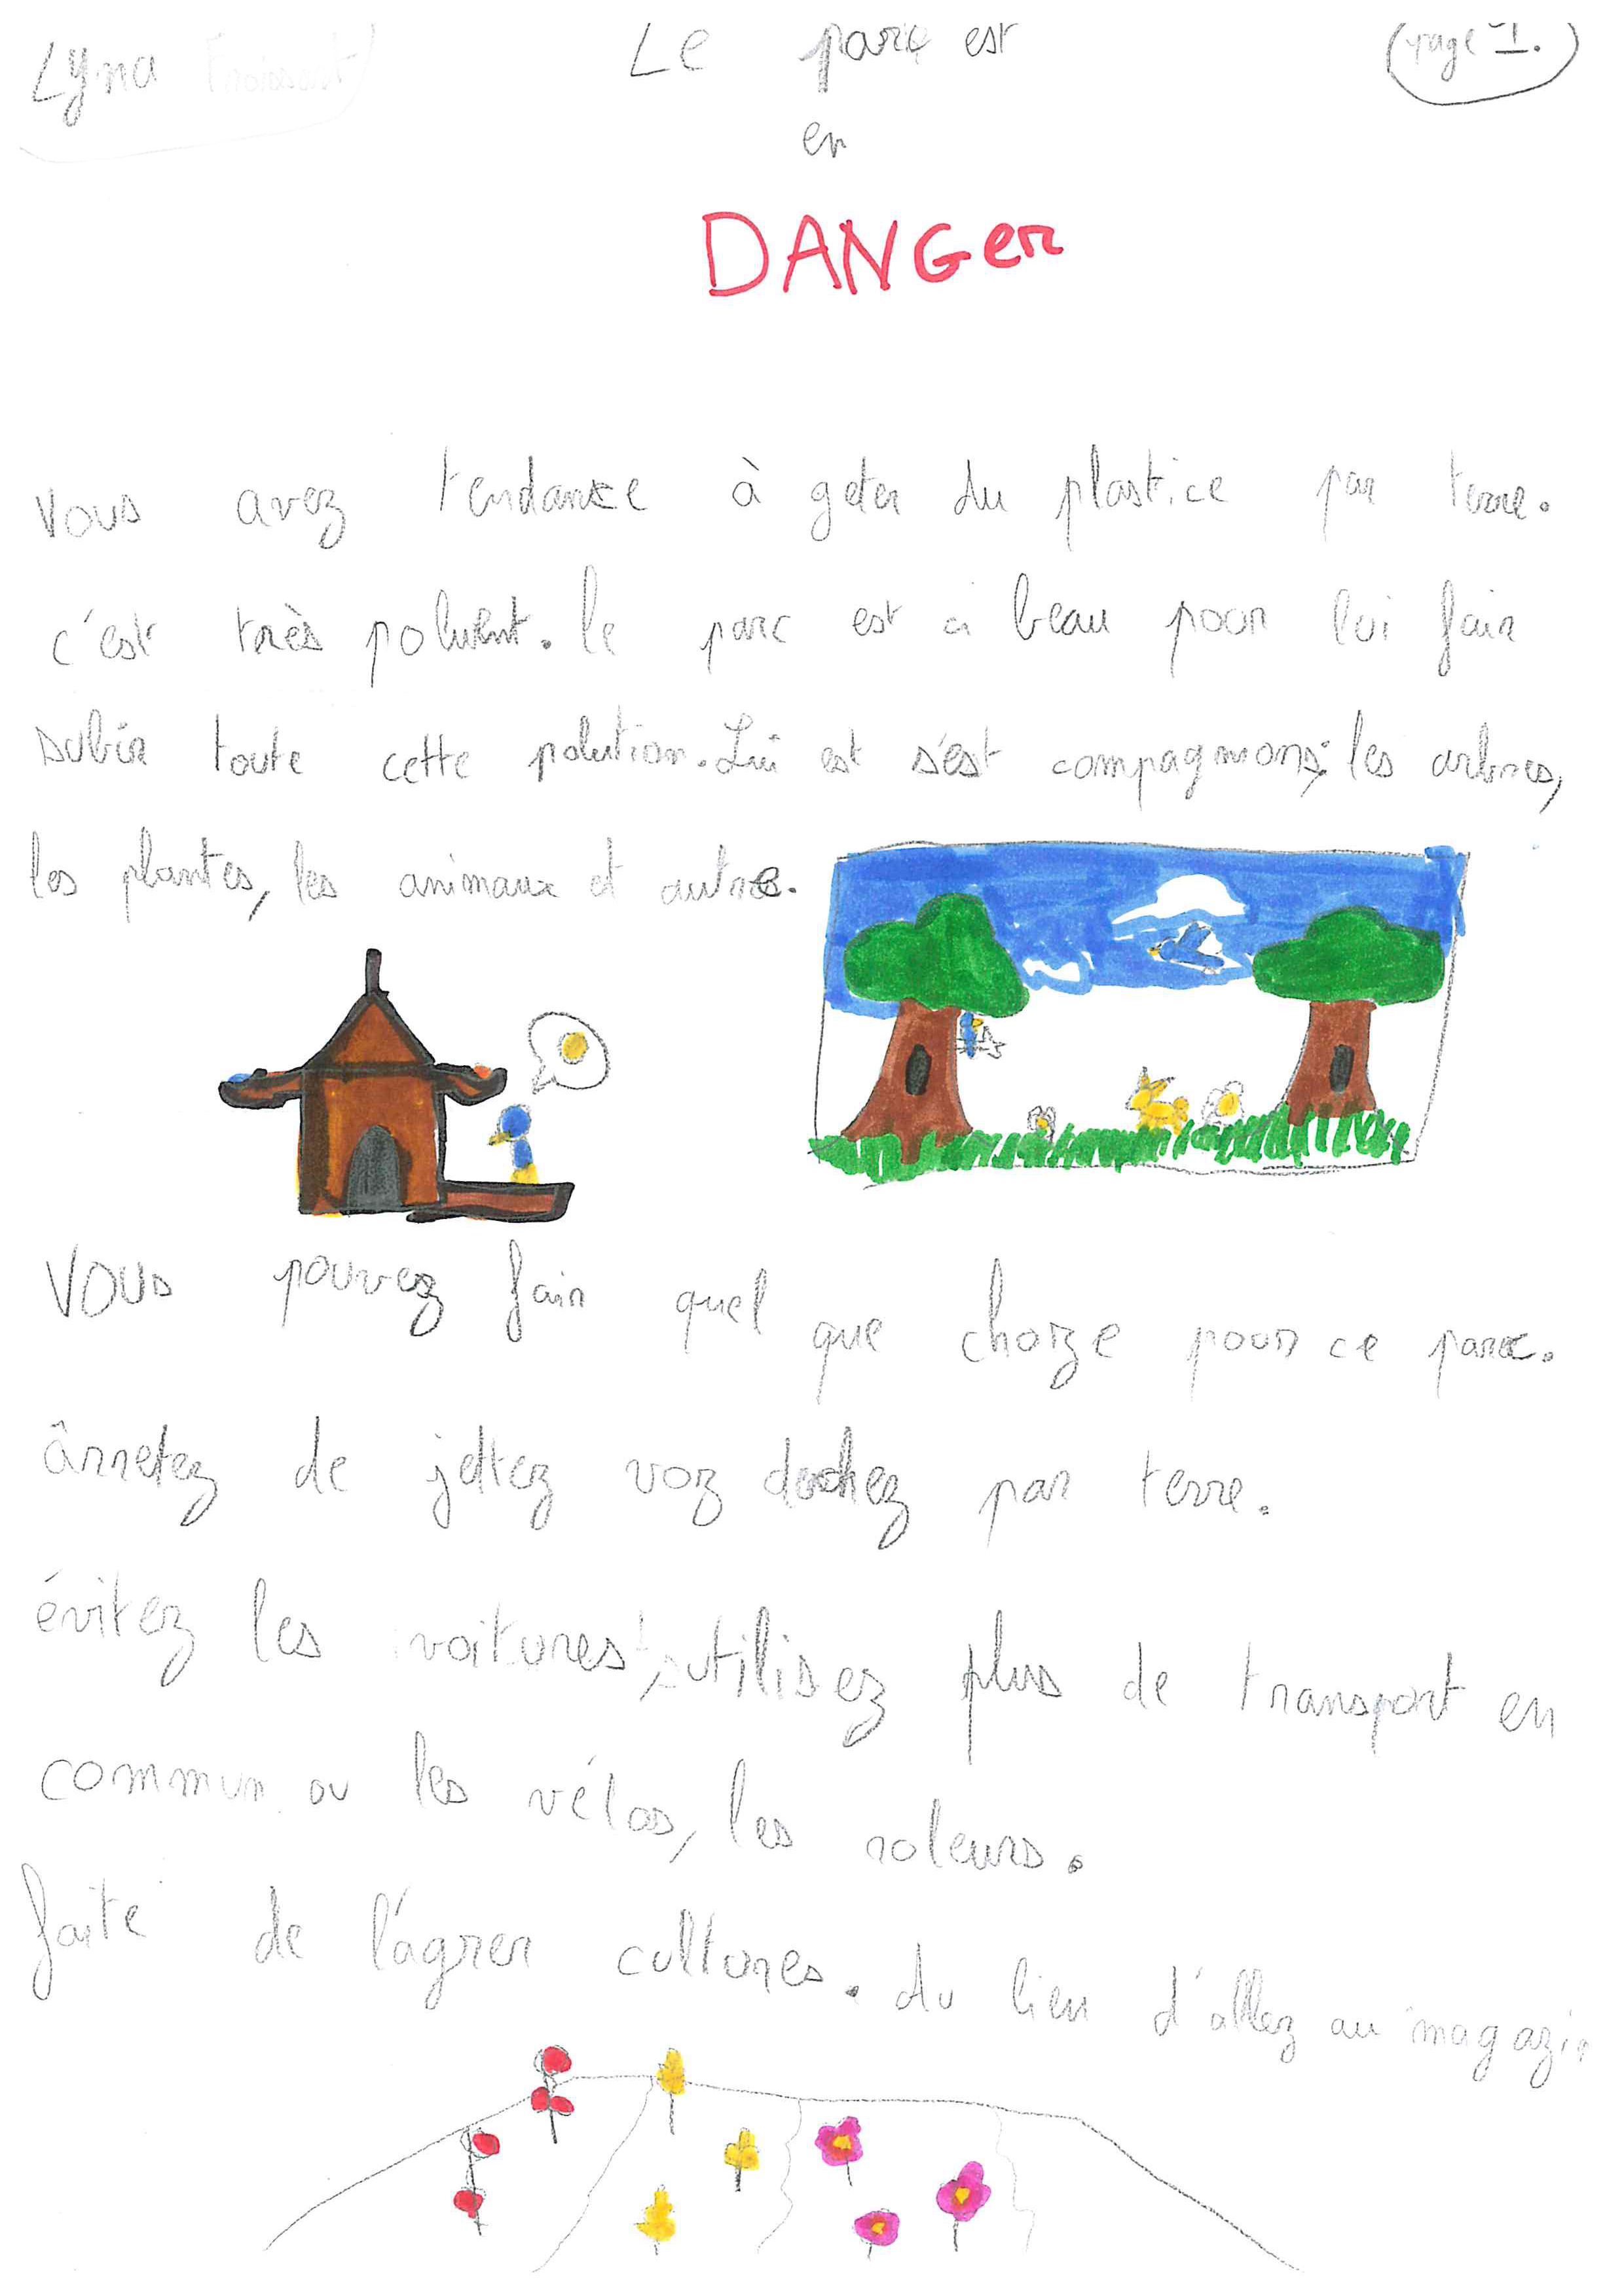 Lyna
Le parc est
page 1.
en
DANGer
Vous avez tendance à geter du plastice par terre.
c'est très poluent. le parc est ci beau pour lui fair
subir toute cette polution. Lui est s'est compagnons: les arbres,
les plantes, les animaux et autre.
Vous pouvez fair quel que choze pour ce parc.
ârretez de jettez voz dechez par terre.
évitez les voitures, utilisez plus de transport en
commun ou les vélos, les roleurs.
faite de l'agrer cultures. Au lieu d'allez au magazin